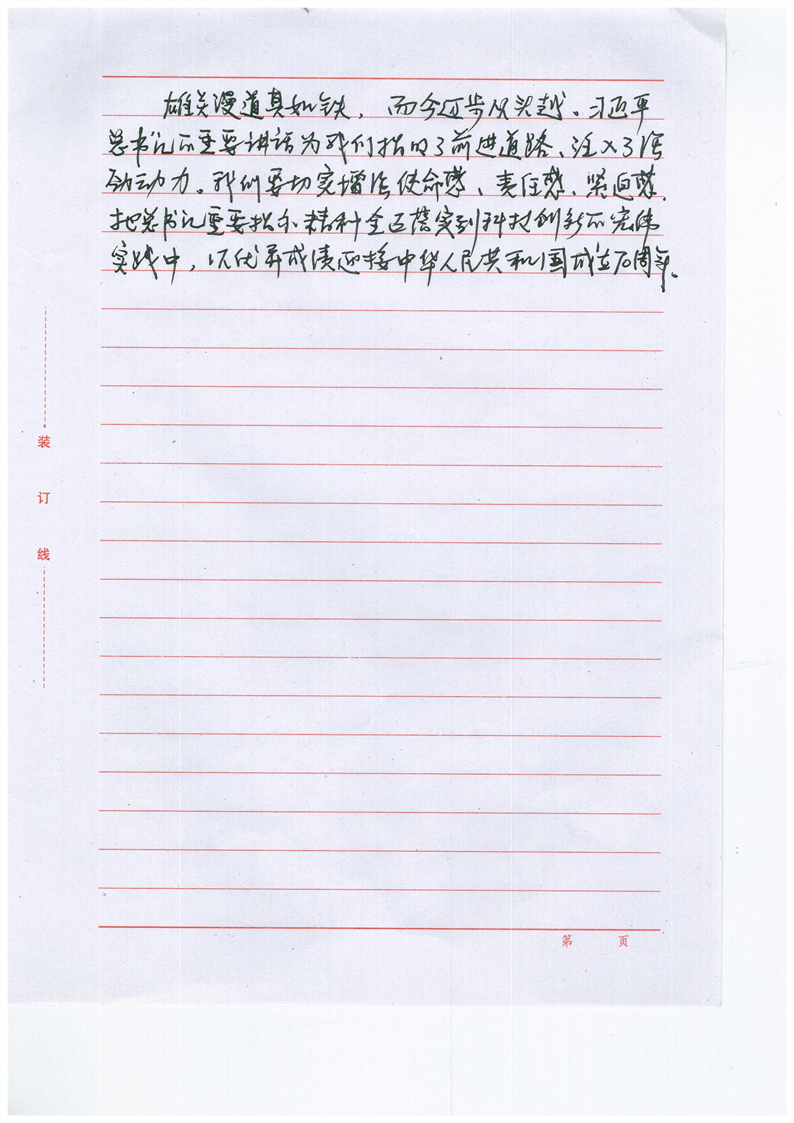 雄关漫道真如铁，而今迈步从头越。习近平
总书记的重要讲话为我们指明了前进道路、注入了强
劲动力。我们要切实增强使命感、责任感、紧迫感，
把总书记重要指示精神全面落实到科技创新的宏伟
实践中，以优异成绩迎接中华人民共和国成立70周年。
装
订
线
第 页